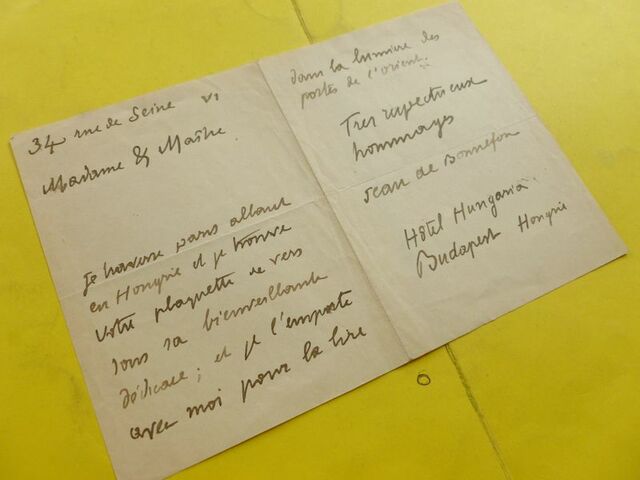 34 rue de Seine VI
Madame & Maître
Je traverse Paris allant
en Hongrie et je trouve
votre plaquette de vers
sous sa bienveillante
dédicace; et je l'emporte
avec moi pour la lire
dans la lumière des
portes de l'orient.
Tres respectueux
hommages
Jean de Bonnefon
Hôtel Hungaria
Budapest Hongrie